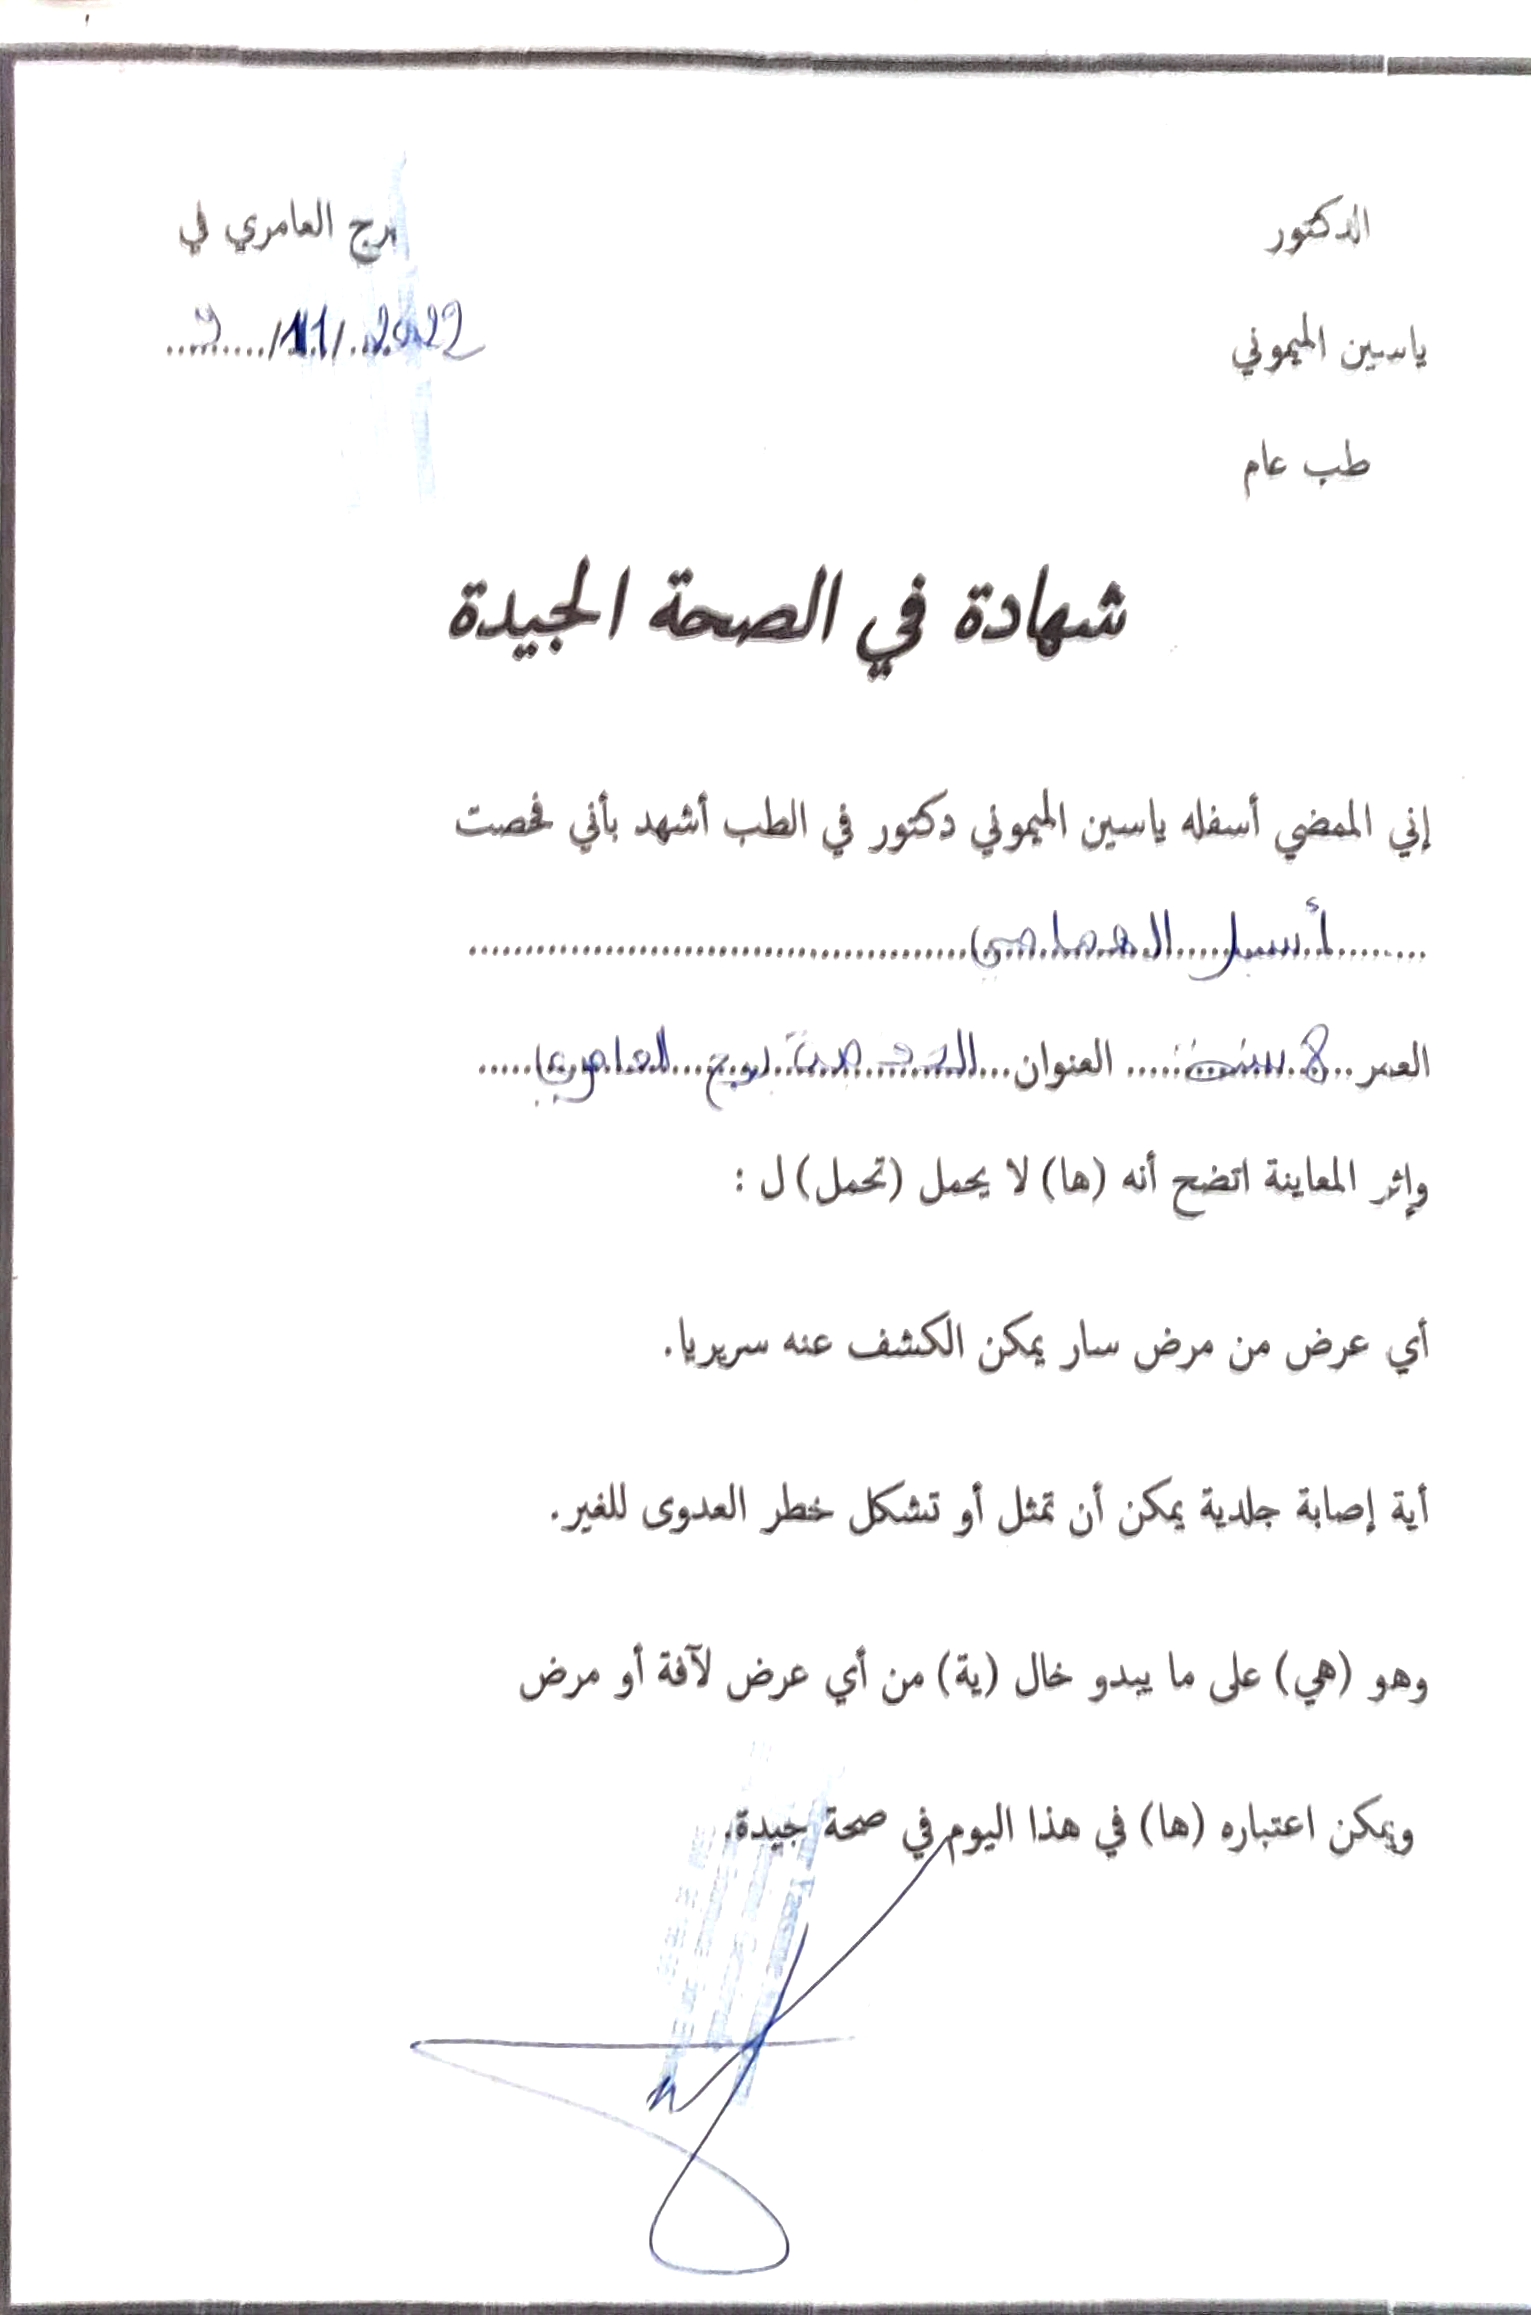 الدكتور
برج العامري في
ياسين الميموني
9/11/2022
طب عام
شهادة في الصحة الجيدة
إني الممضي أسفله ياسين الميموني دكتور في الطب أشهد بأني فحصت
أسيل
العمر 8 سنوات العنوان برج العامري
وإثر المعاينة اتضح أنه (ها) لا يحمل (تحمل) ل :
أي عرض من مرض سار يمكن الكشف عنه سريريا.
أية إصابة جلدية يمكن أن تمثل أو تشكل خطر العدوى للغير.
وهو (هي) على ما يبدو خال (ية) من أي عرض لآفة أو مرض
ويمكن اعتباره (ها) في هذا اليوم في صحة جيدة.